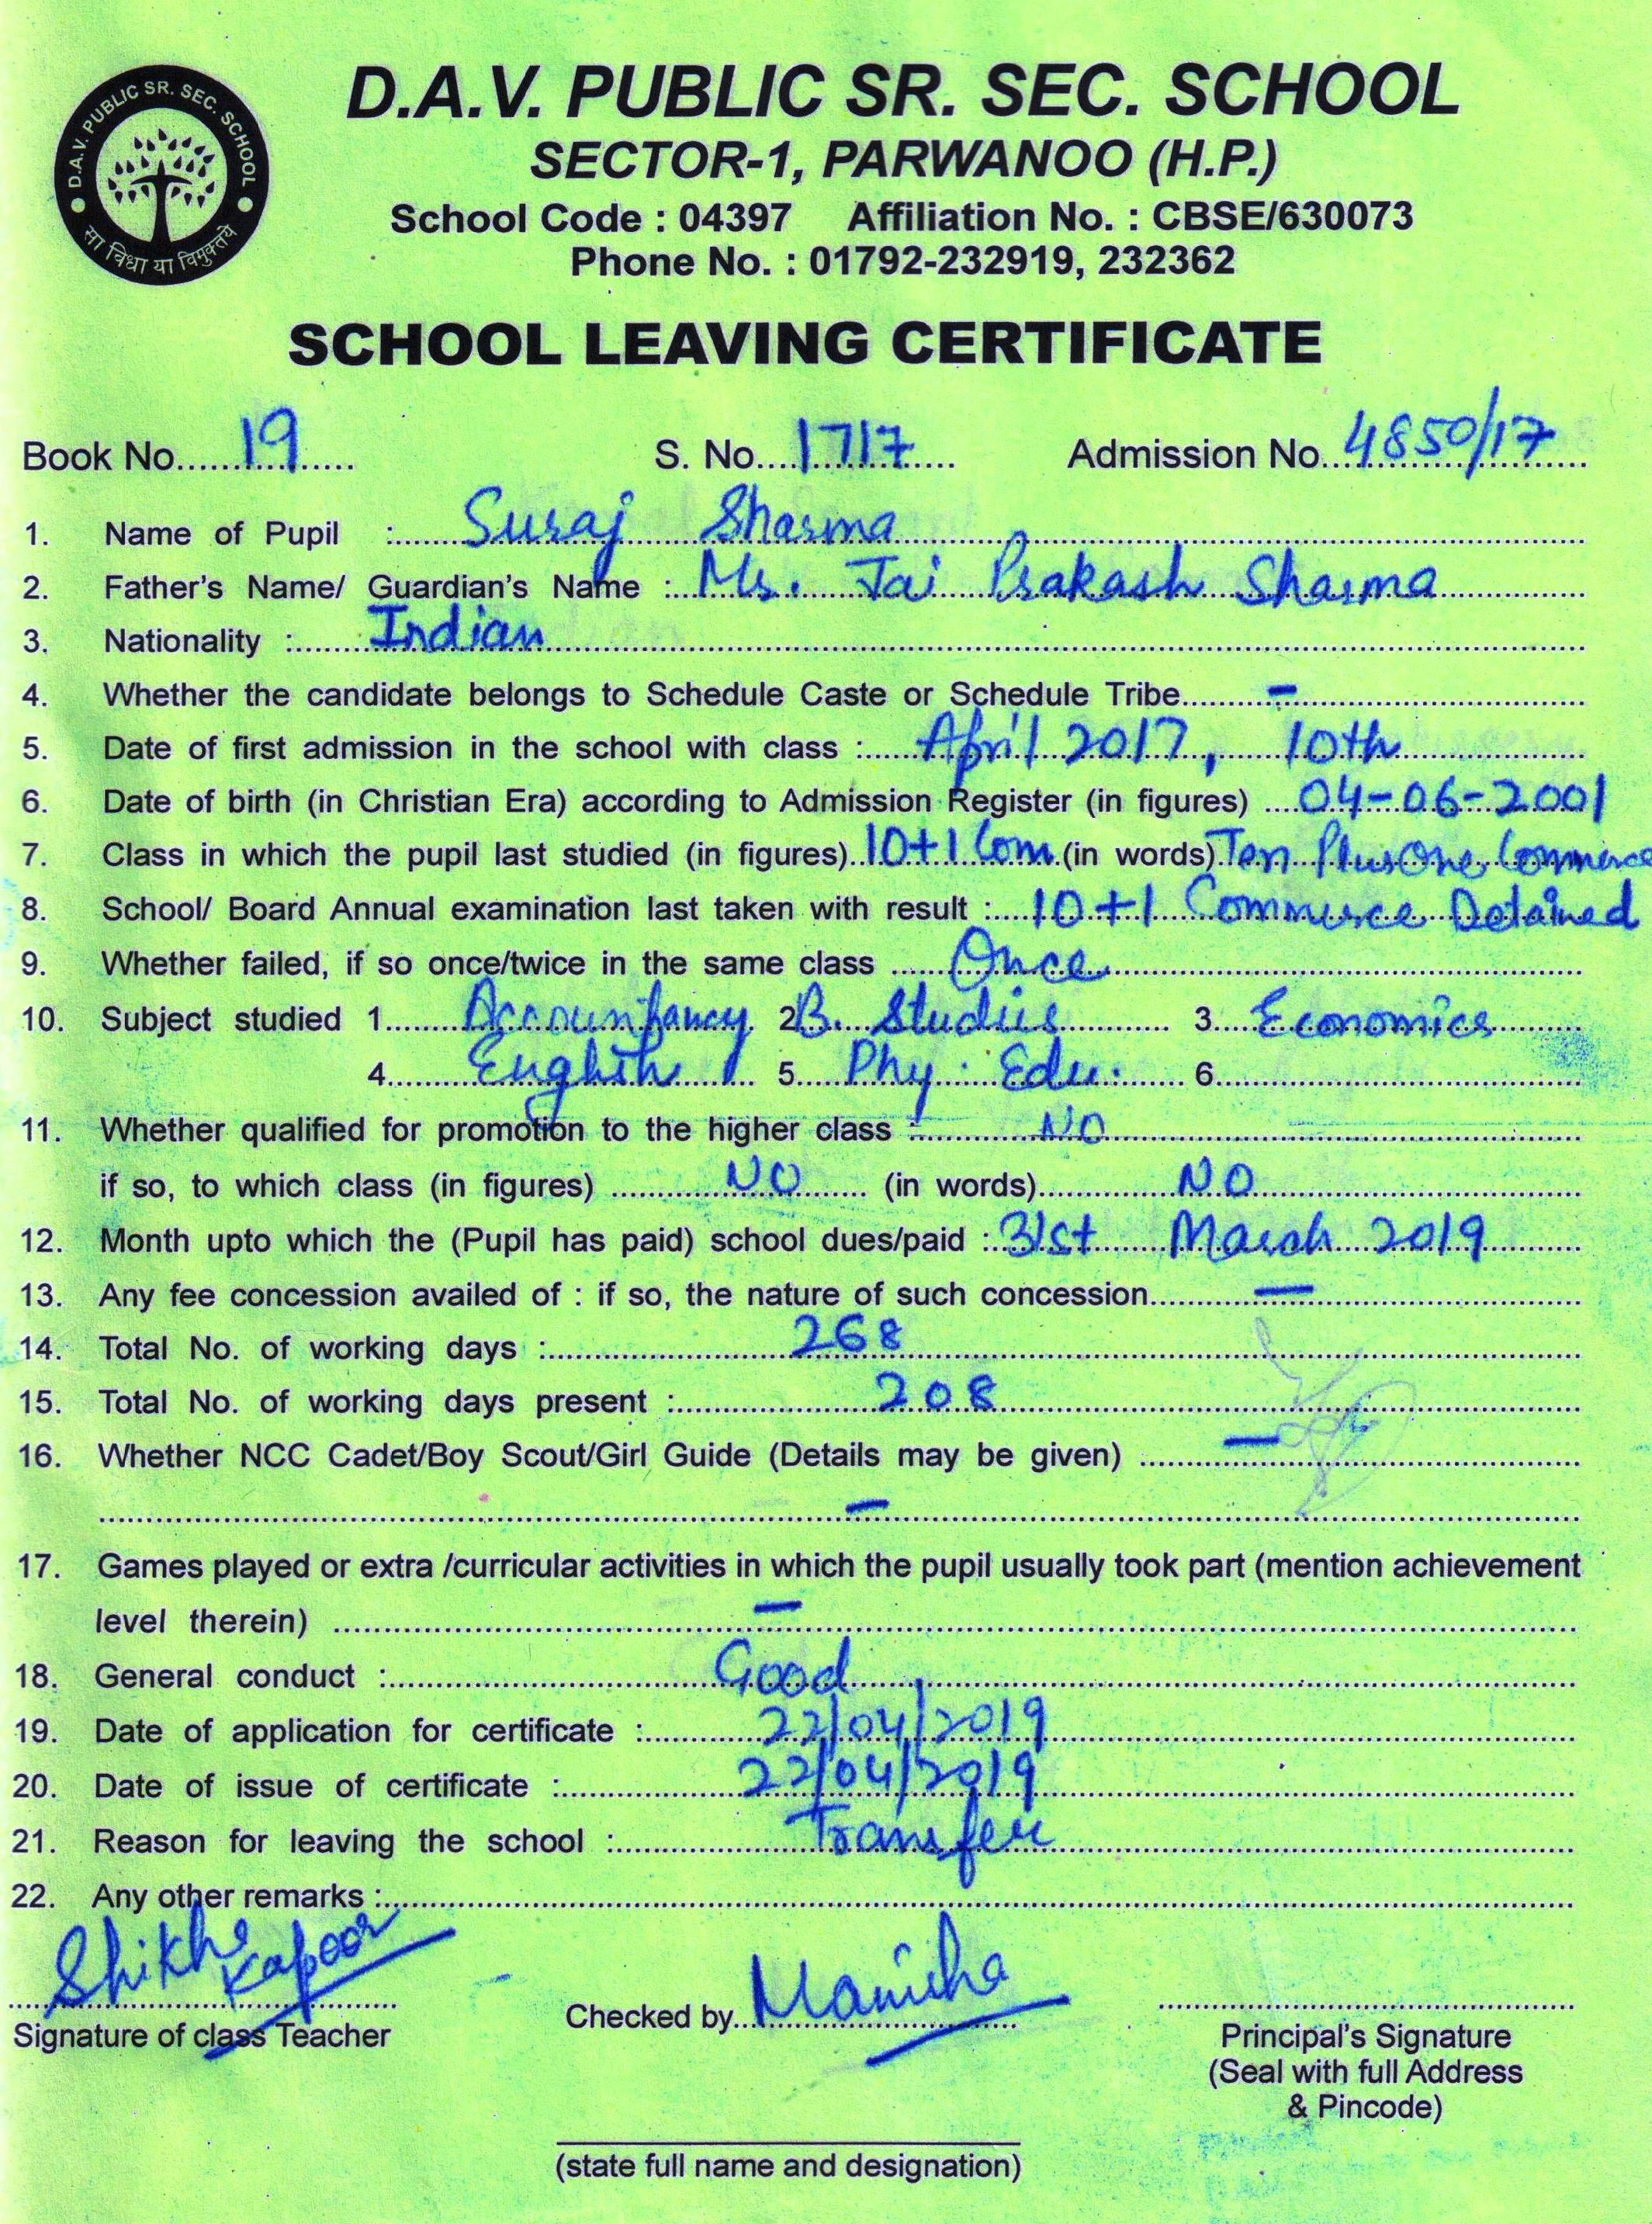 D.A.V. PUBLIC SR. SEC. SCHOOL
सा विद्या या विमुक्तये
D.A.V. PUBLIC SR. SEC. SCHOOL
SECTOR-1, PARWANOO (H.P.)
School Code : 04397 Affiliation No. : CBSE/630073
Phone No. : 01792-232919, 232362
SCHOOL LEAVING CERTIFICATE
Book No. 19 S. No. 1717 Admission No. 4850/17
1. Name of Pupil : Suraj Sharma
2. Father's Name/ Guardian's Name : Mr. Jai Prakash Sharma
3. Nationality : Indian
4. Whether the candidate belongs to Schedule Caste or Schedule Tribe -
5. Date of first admission in the school with class : April 2017, 10th
6. Date of birth (in Christian Era) according to Admission Register (in figures) 04-06-2001
7. Class in which the pupil last studied (in figures) 10+1 Com (in words) Ten Plus One Commerce
8. School/ Board Annual examination last taken with result : 10+1 Commerce Detained
9. Whether failed, if so once/twice in the same class Once
10. Subject studied 1. Accountancy 2. B. Studies 3. Economics
4. English 5. Phy. Edu. 6.
11. Whether qualified for promotion to the higher class : NO
if so, to which class (in figures) NO (in words) NO
12. Month upto which the (Pupil has paid) school dues/paid : 31st March 2019
13. Any fee concession availed of : if so, the nature of such concession -
14. Total No. of working days : 268
15. Total No. of working days present : 208
16. Whether NCC Cadet/Boy Scout/Girl Guide (Details may be given) -
-
17. Games played or extra /curricular activities in which the pupil usually took part (mention achievement
level therein) -
18. General conduct : Good
19. Date of application for certificate : 22/04/2019
20. Date of issue of certificate : 22/04/2019
21. Reason for leaving the school : Transfer
22. Any other remarks :
Shikha Kapoor
Signature of class Teacher
Checked by Manisha
Principal's Signature
(Seal with full Address
& Pincode)
(state full name and designation)